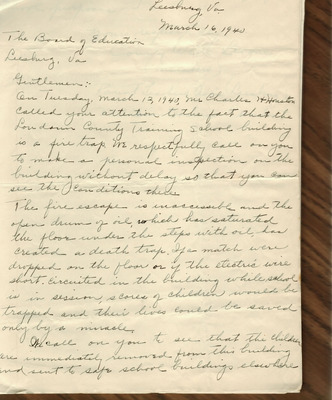 Leesburg, Va
March 16, 1940
The Board of Education
Leesburg, Va
Gentlemen:-
On Tuesday, March 12, 1940, Mr Charles H Houston
called your attention to the fact that the
Loudoun County Training School building
is a fire trap. We respectfully call on you
to make a personal inspection on the
building without delay so that you can
see the conditions there.
The fire escape is inaccessable and the
open drum of oil which has saturated
the floor under the steps with oil, has
created a death trap. If a match were
dropped on the floor or if the electric were
short circuited in the building while school
is in session, scores of children would be
trapped and their lives could be saved
only by a miracle.
We call on you to see that the children
are immediately removed from this building
and sent to safe school buildings elsewhere